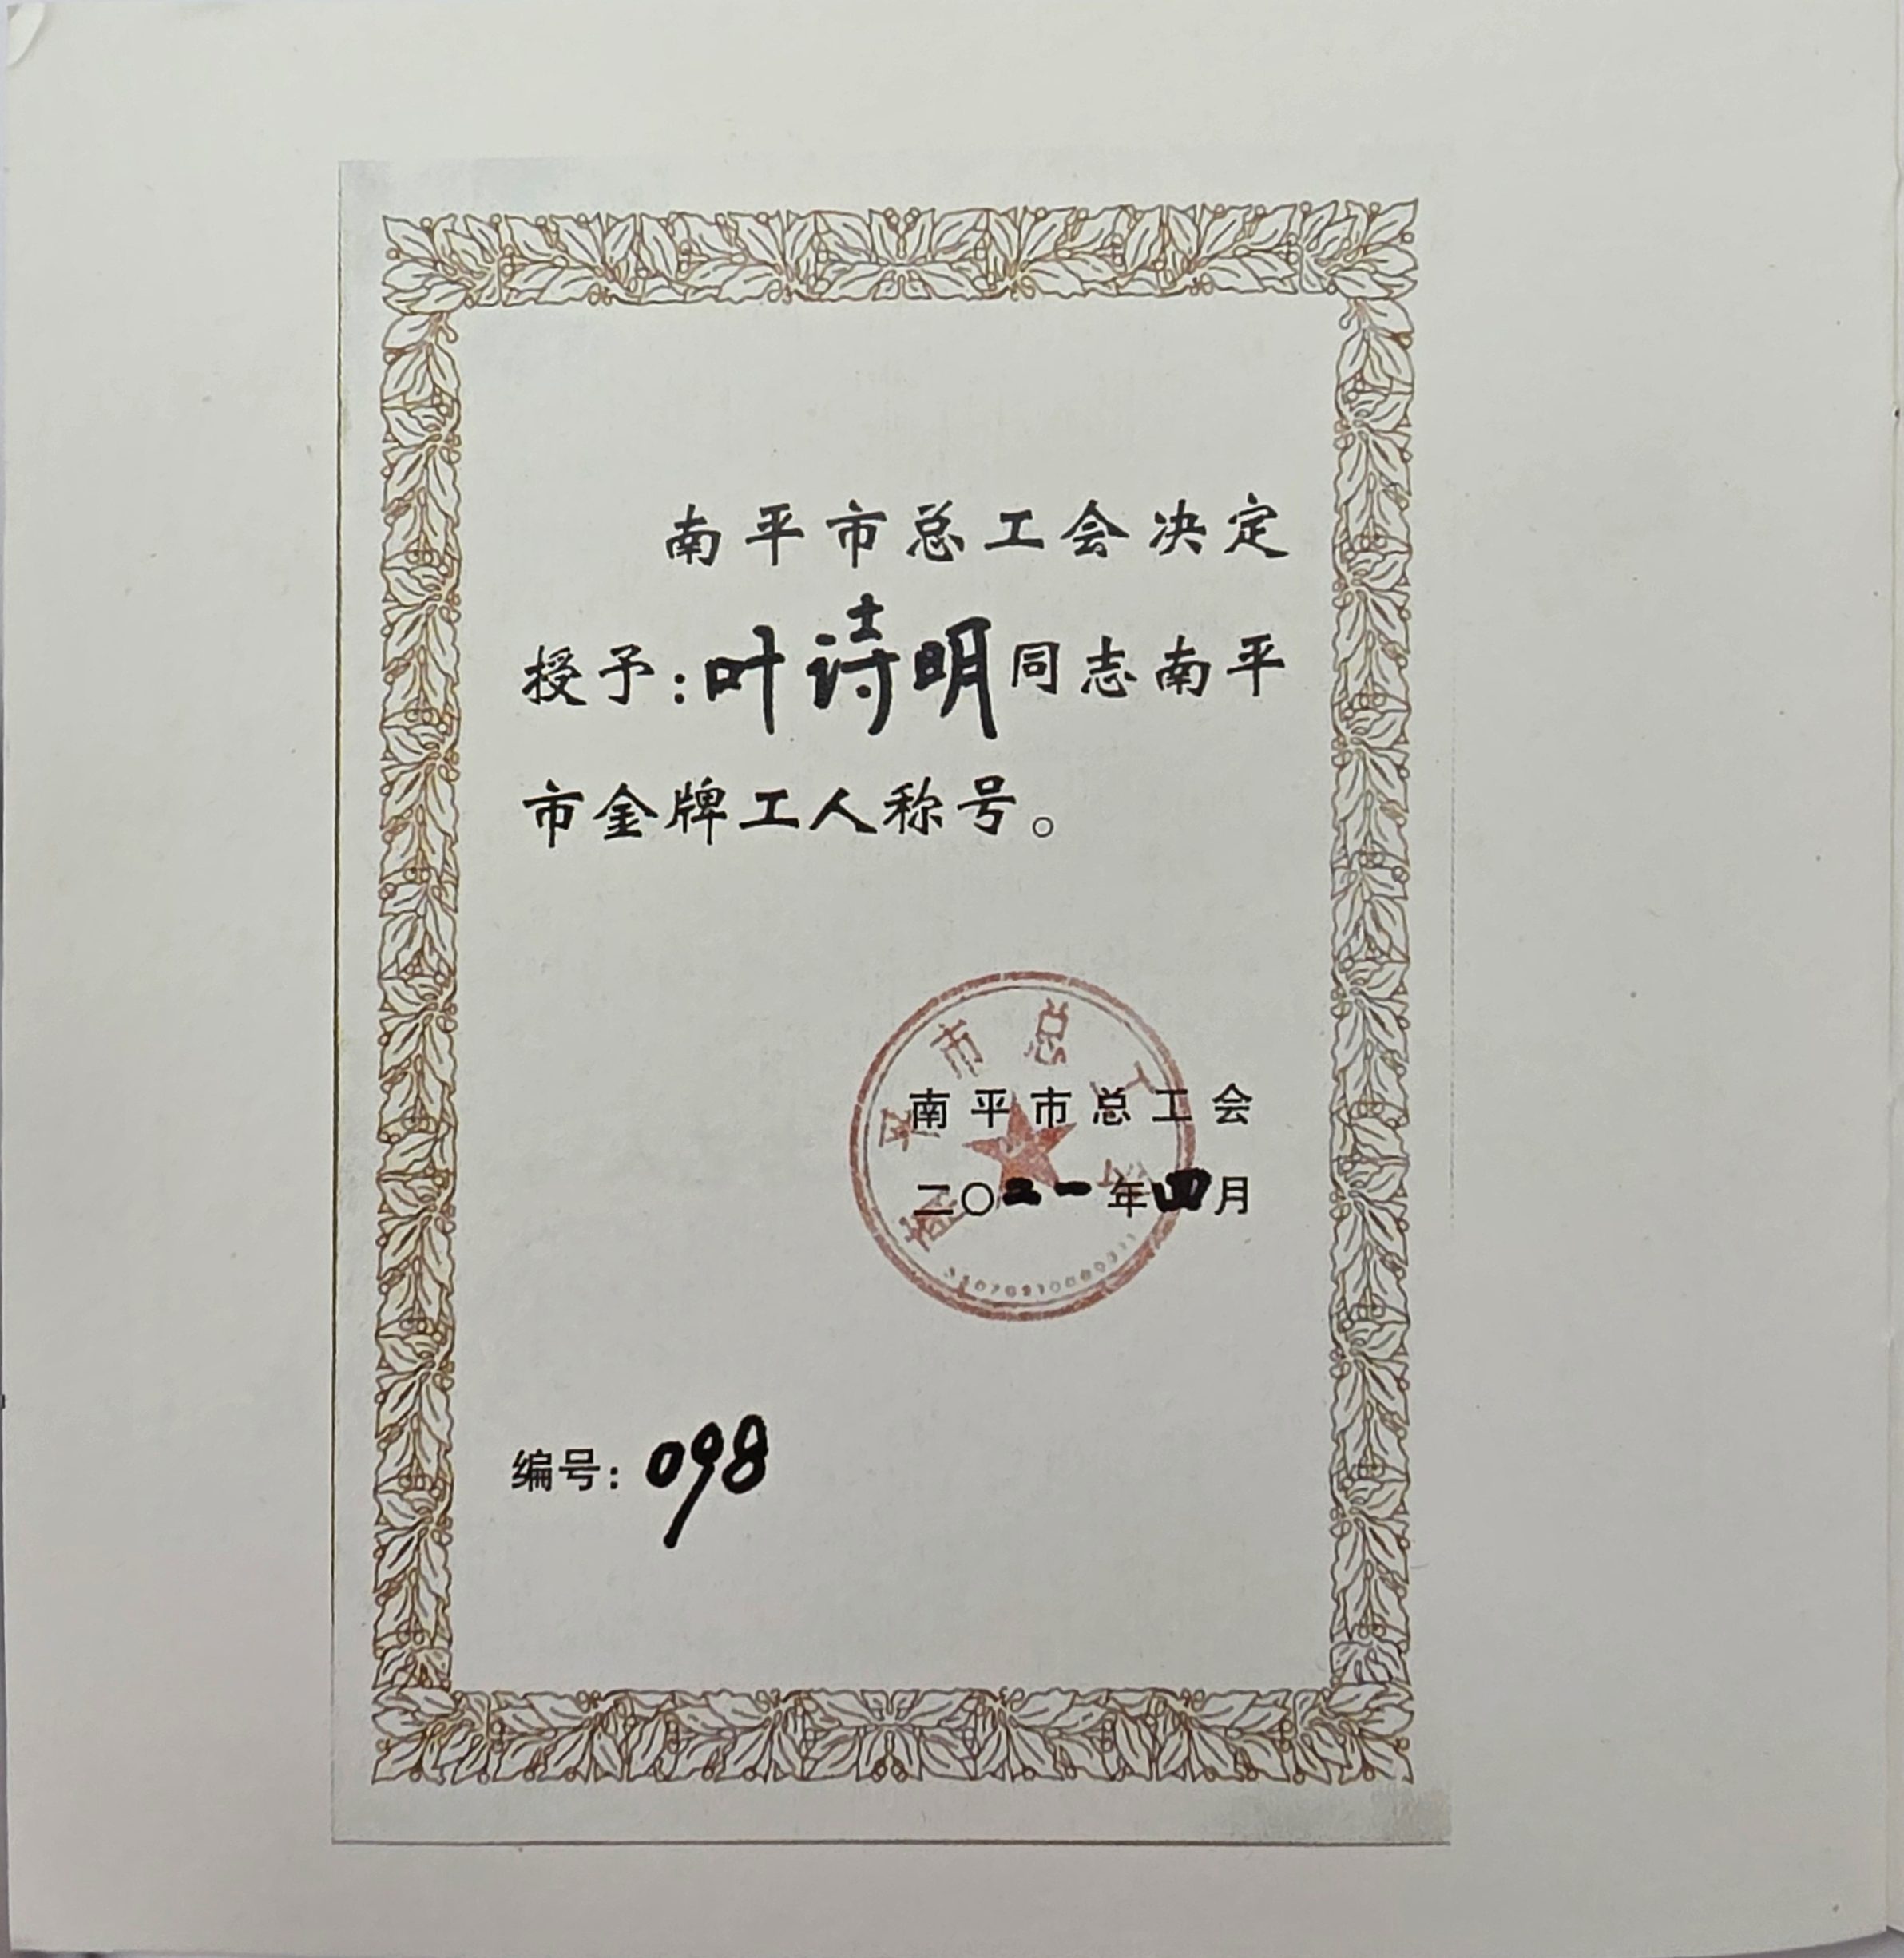 南平市总工会决定
授予：叶诗明同志南平
市金牌工人称号。
南平市总工会
南平市总工会
二〇二一年四月
编号：098